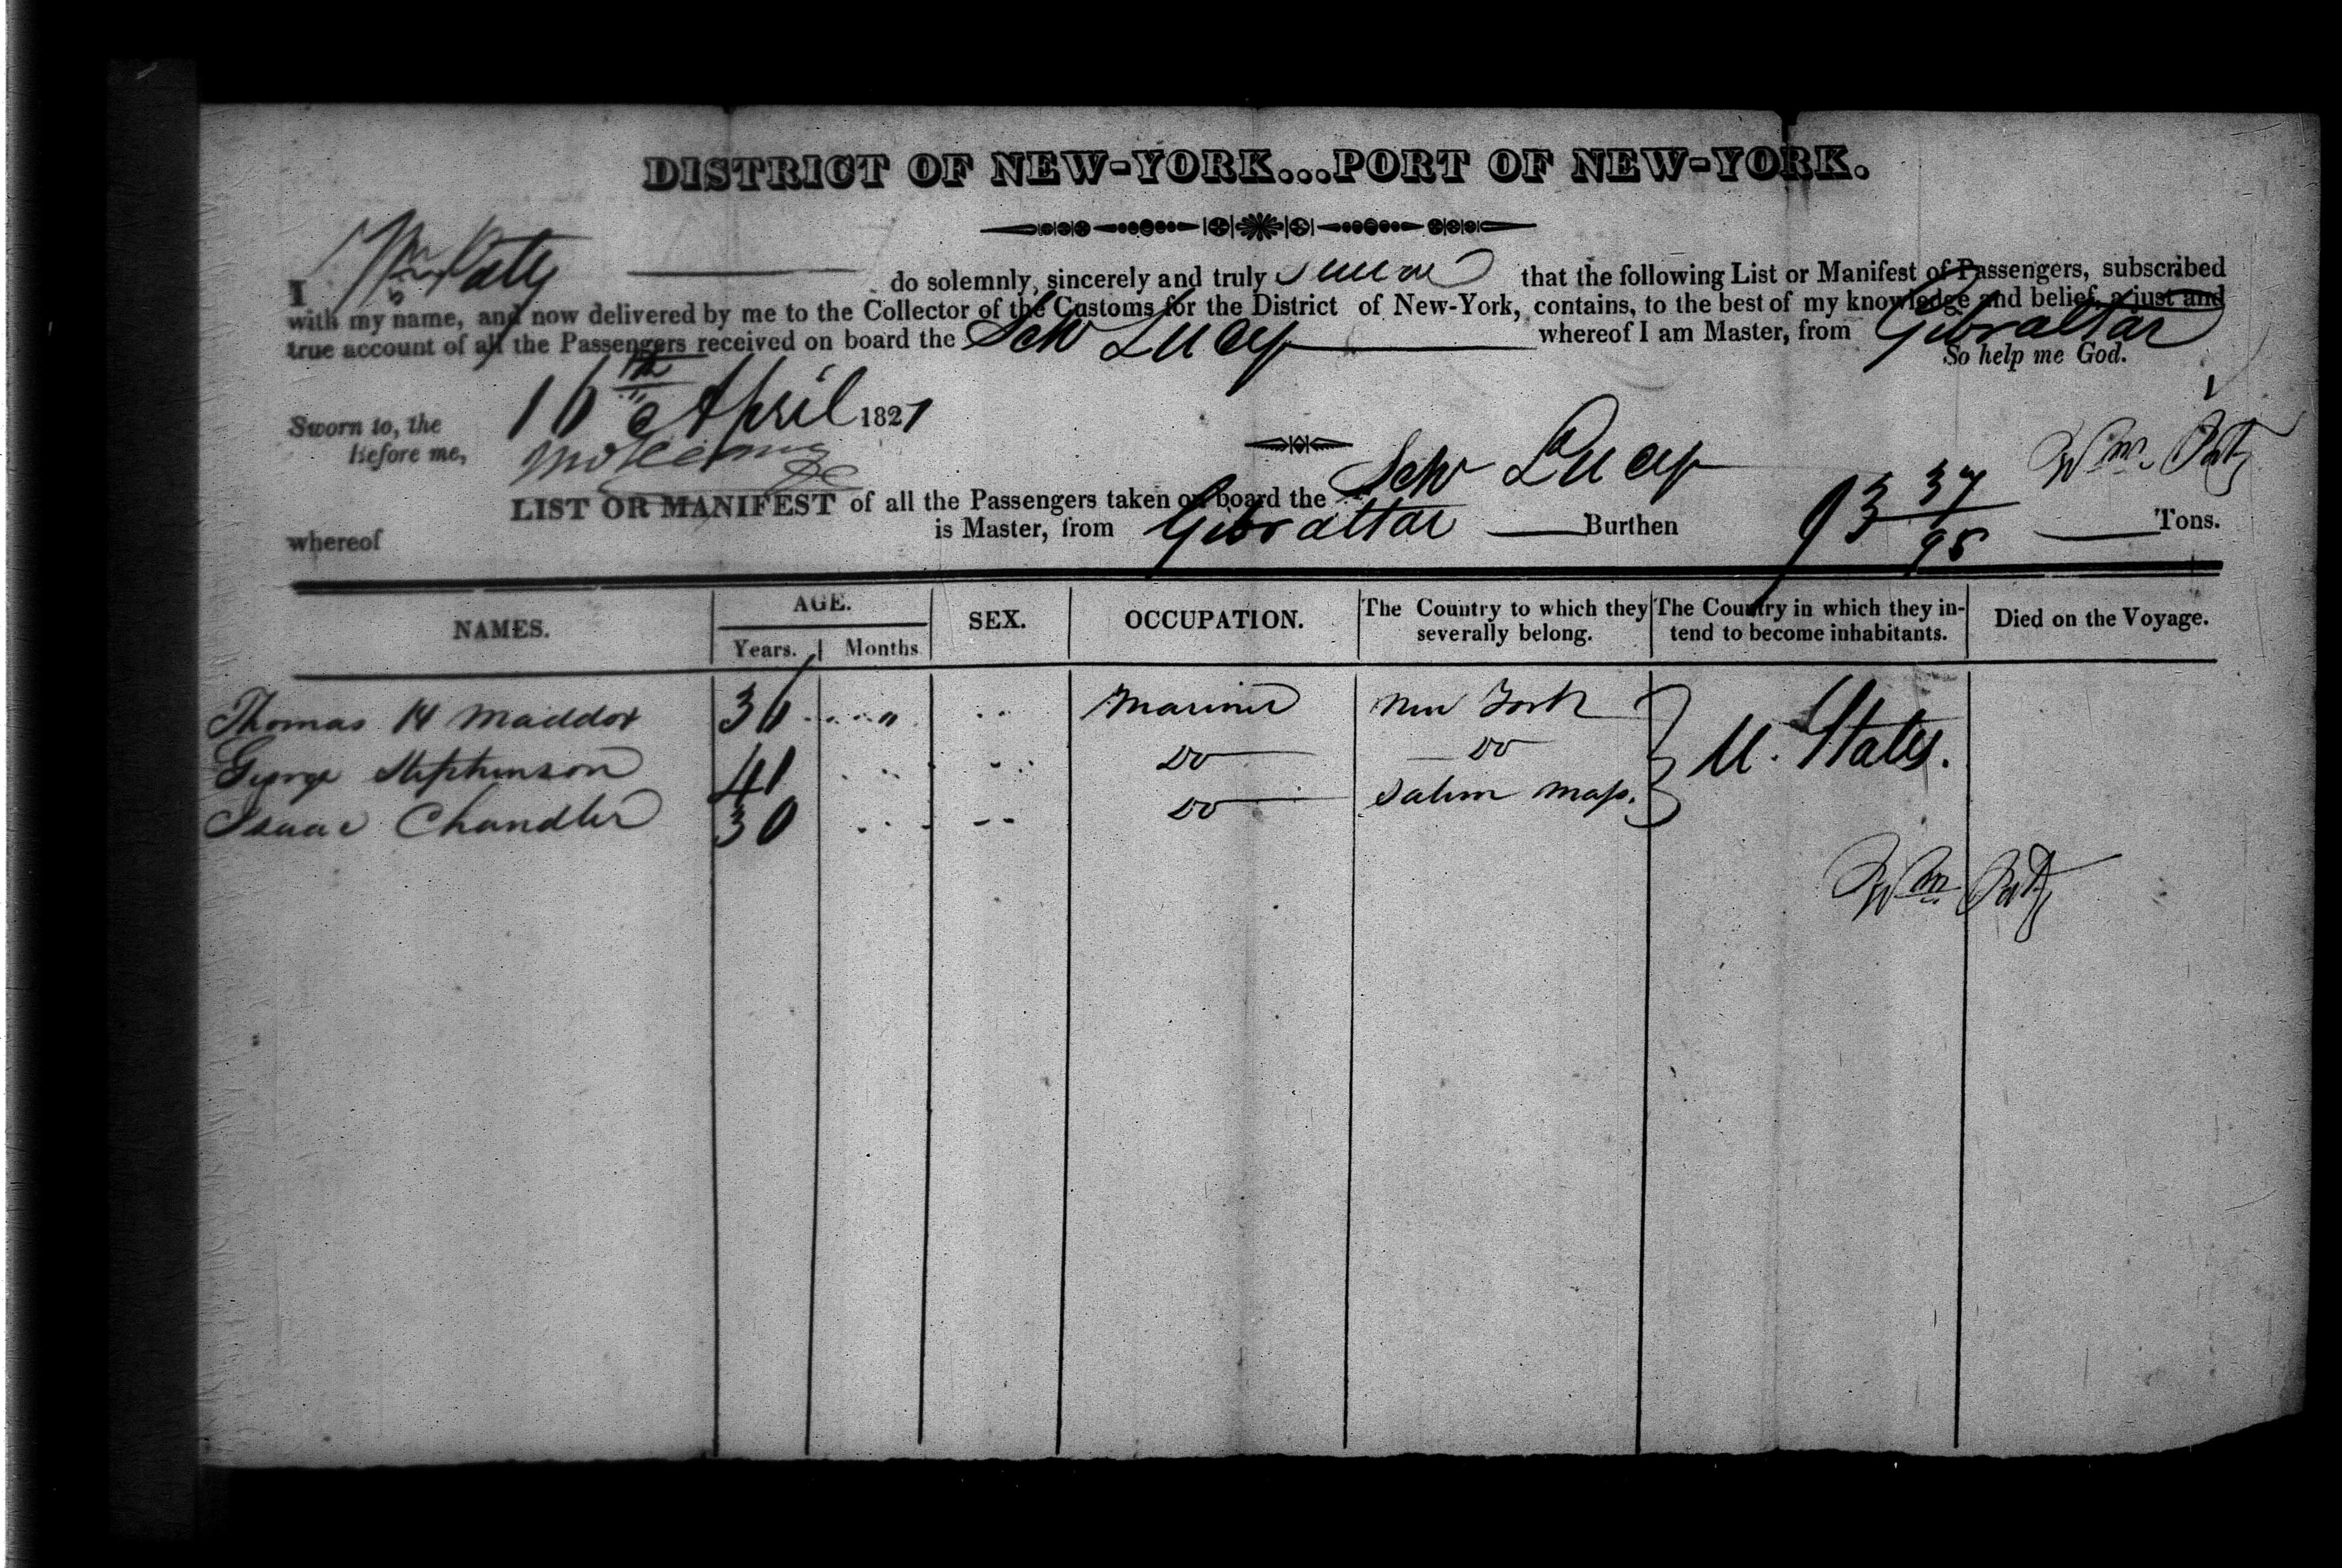 DISTRICT OF NEW-YORK...PORT OF NEW-YORK.
I Wm Paty do solemnly, sincerely and truly swear that the following List or Manifest of Passengers, subscribed
with my name, and now delivered by me to the Collector of the Customs for the District of New-York, contains, to the best of my knowledge and belief, a just and
true account of all the Passengers received on board the Schr Lucy whereof I am Master, from Gibraltar
So help me God.
Sworn to, the 16th April 1821
Before me,
Wm. Paty
LIST OR MANIFEST of all the Passengers taken on board the Schr Lucy
whereof is Master, from Gibraltar Burthen 93 37/95 Tons.
NAMES. AGE. SEX. OCCUPATION. The Country to which they severally belong. The Country in which they intend to become inhabitants. Died on the Voyage.
Years. Months
Thomas H Maddox 36 .... " .. Mariner New York
George Stephenson 41 ... ... Do Do U. States.
Isaac Chandler 30 ... -- Do Salem Mass.
Wm Paty